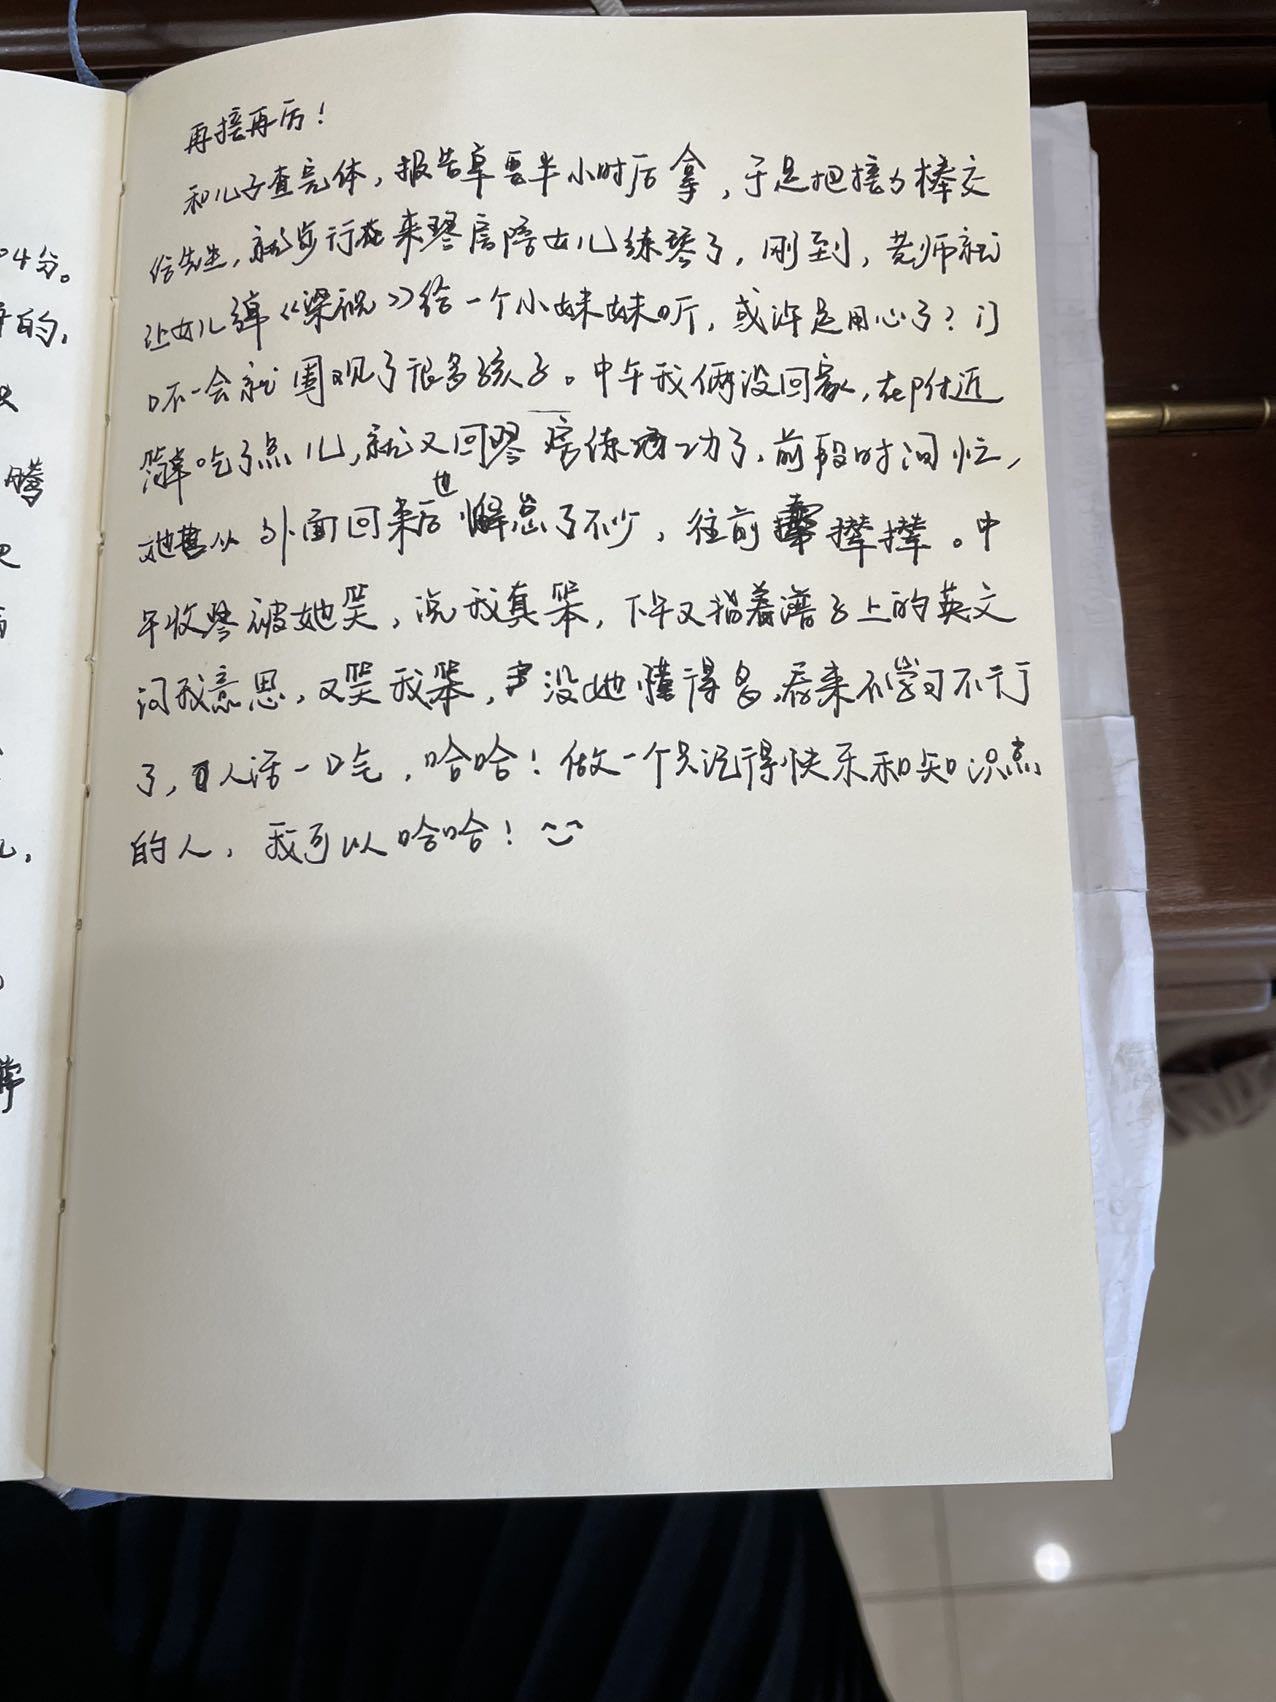 04分。
的,
腾
再接再厉!
和儿子查完体,报告单要半小时后拿,于是把接力棒交
给先生,就步行来琴房陪女儿练琴了,刚到,老师就
让女儿弹《梁祝》给一个小妹妹听,或许是用心了?门
口不一会就围观了很多孩子。中午我俩没回家,在附近
简单吃了点儿,就又回琴房练功了,前段时间忙,
她从外面回来后也懈怠了不少,往前撵撵。中
午收琴被她笑,说我真笨,下午又指着谱子上的英文
问我意思,又笑我笨,没她懂得多,看来不学习不行
了,人活一口气,哈哈!做一个只记得快乐和知识点
的人,我可以哈哈!